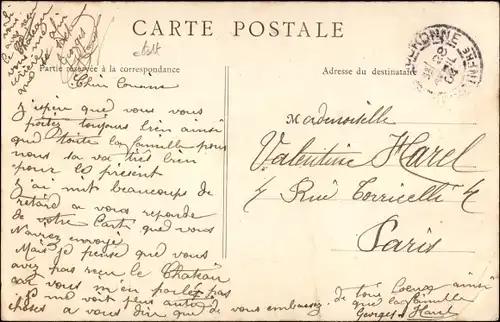 CARTE POSTALE
Partie réservée à la correspondance
Adresse du destinataire
PERONNE
Cher Cousine
J'espère que vous vous
portez toujours bien ainsi
que toute la famille pour
nous sa va très bien
pour le présent
J'ai mit beaucoup de
retard a vous reponde
de votre Carte que vous
N'avez envoyé
Mais je pense que vous
avez pas reçu le Chateau
car vous m'en parlez pas
Je me voit pens autre
choses a vous dire que de vous embrasser
de tout Coeur ainsi
que la famille
Georges Harel
Mademoiselle
Valentine Harel
4 Rue Torricelli 4
Paris